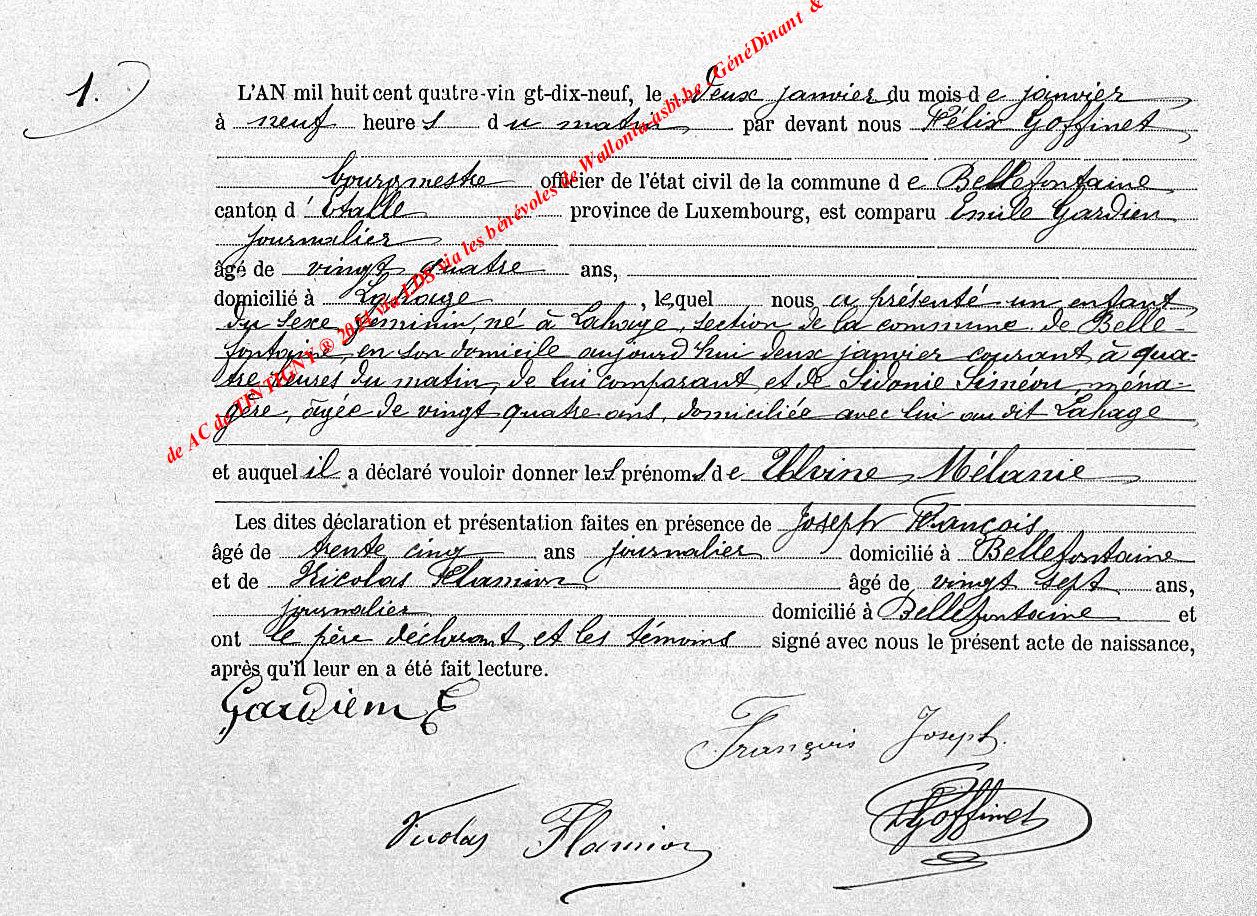 1.
L'AN mil huit cent quatre-vin gt-dix-neuf, le deux janvier du mois de janvier
à neuf heures du matin par devant nous Félix Goffinet
bourgmestre officier de l'état civil de la commune de Bellefontaine
canton d'Etalle province de Luxembourg, est comparu Emile Gardien
journalier
âgé de vingt quatre ans,
domicilié à Lahage, lequel nous a présenté un enfant
du sexe féminin, né à Lahage, section de la commune de Belle-
fontaine, en son domicile aujourd'hui deux janvier courant à qua-
tre heures du matin, de lui comparant et de Sidonie Siméon, ména-
gère, âgée de vingt quatre ans, domiciliée avec lui au dit Lahage
et auquel il a déclaré vouloir donner les prénoms de Ulvine Mélanie
Les dites déclaration et présentation faites en présence de Joseph François
âgé de trente cinq ans journalier domicilié à Bellefontaine
et de Nicolas Flamion, âgé de vingt sept ans,
journalier domicilié à Bellefontaine et
ont le père déclarant et les témoins signé avec nous le présent acte de naissance,
après qu'il leur en a été fait lecture.
Gardien E
François Joseph.
Nicolas Flamion
FGoffinet
de AC de TINTIGNY ® 2024 via LDS via les bénévoles de Wallonia-asbl.be, GénéDinant &